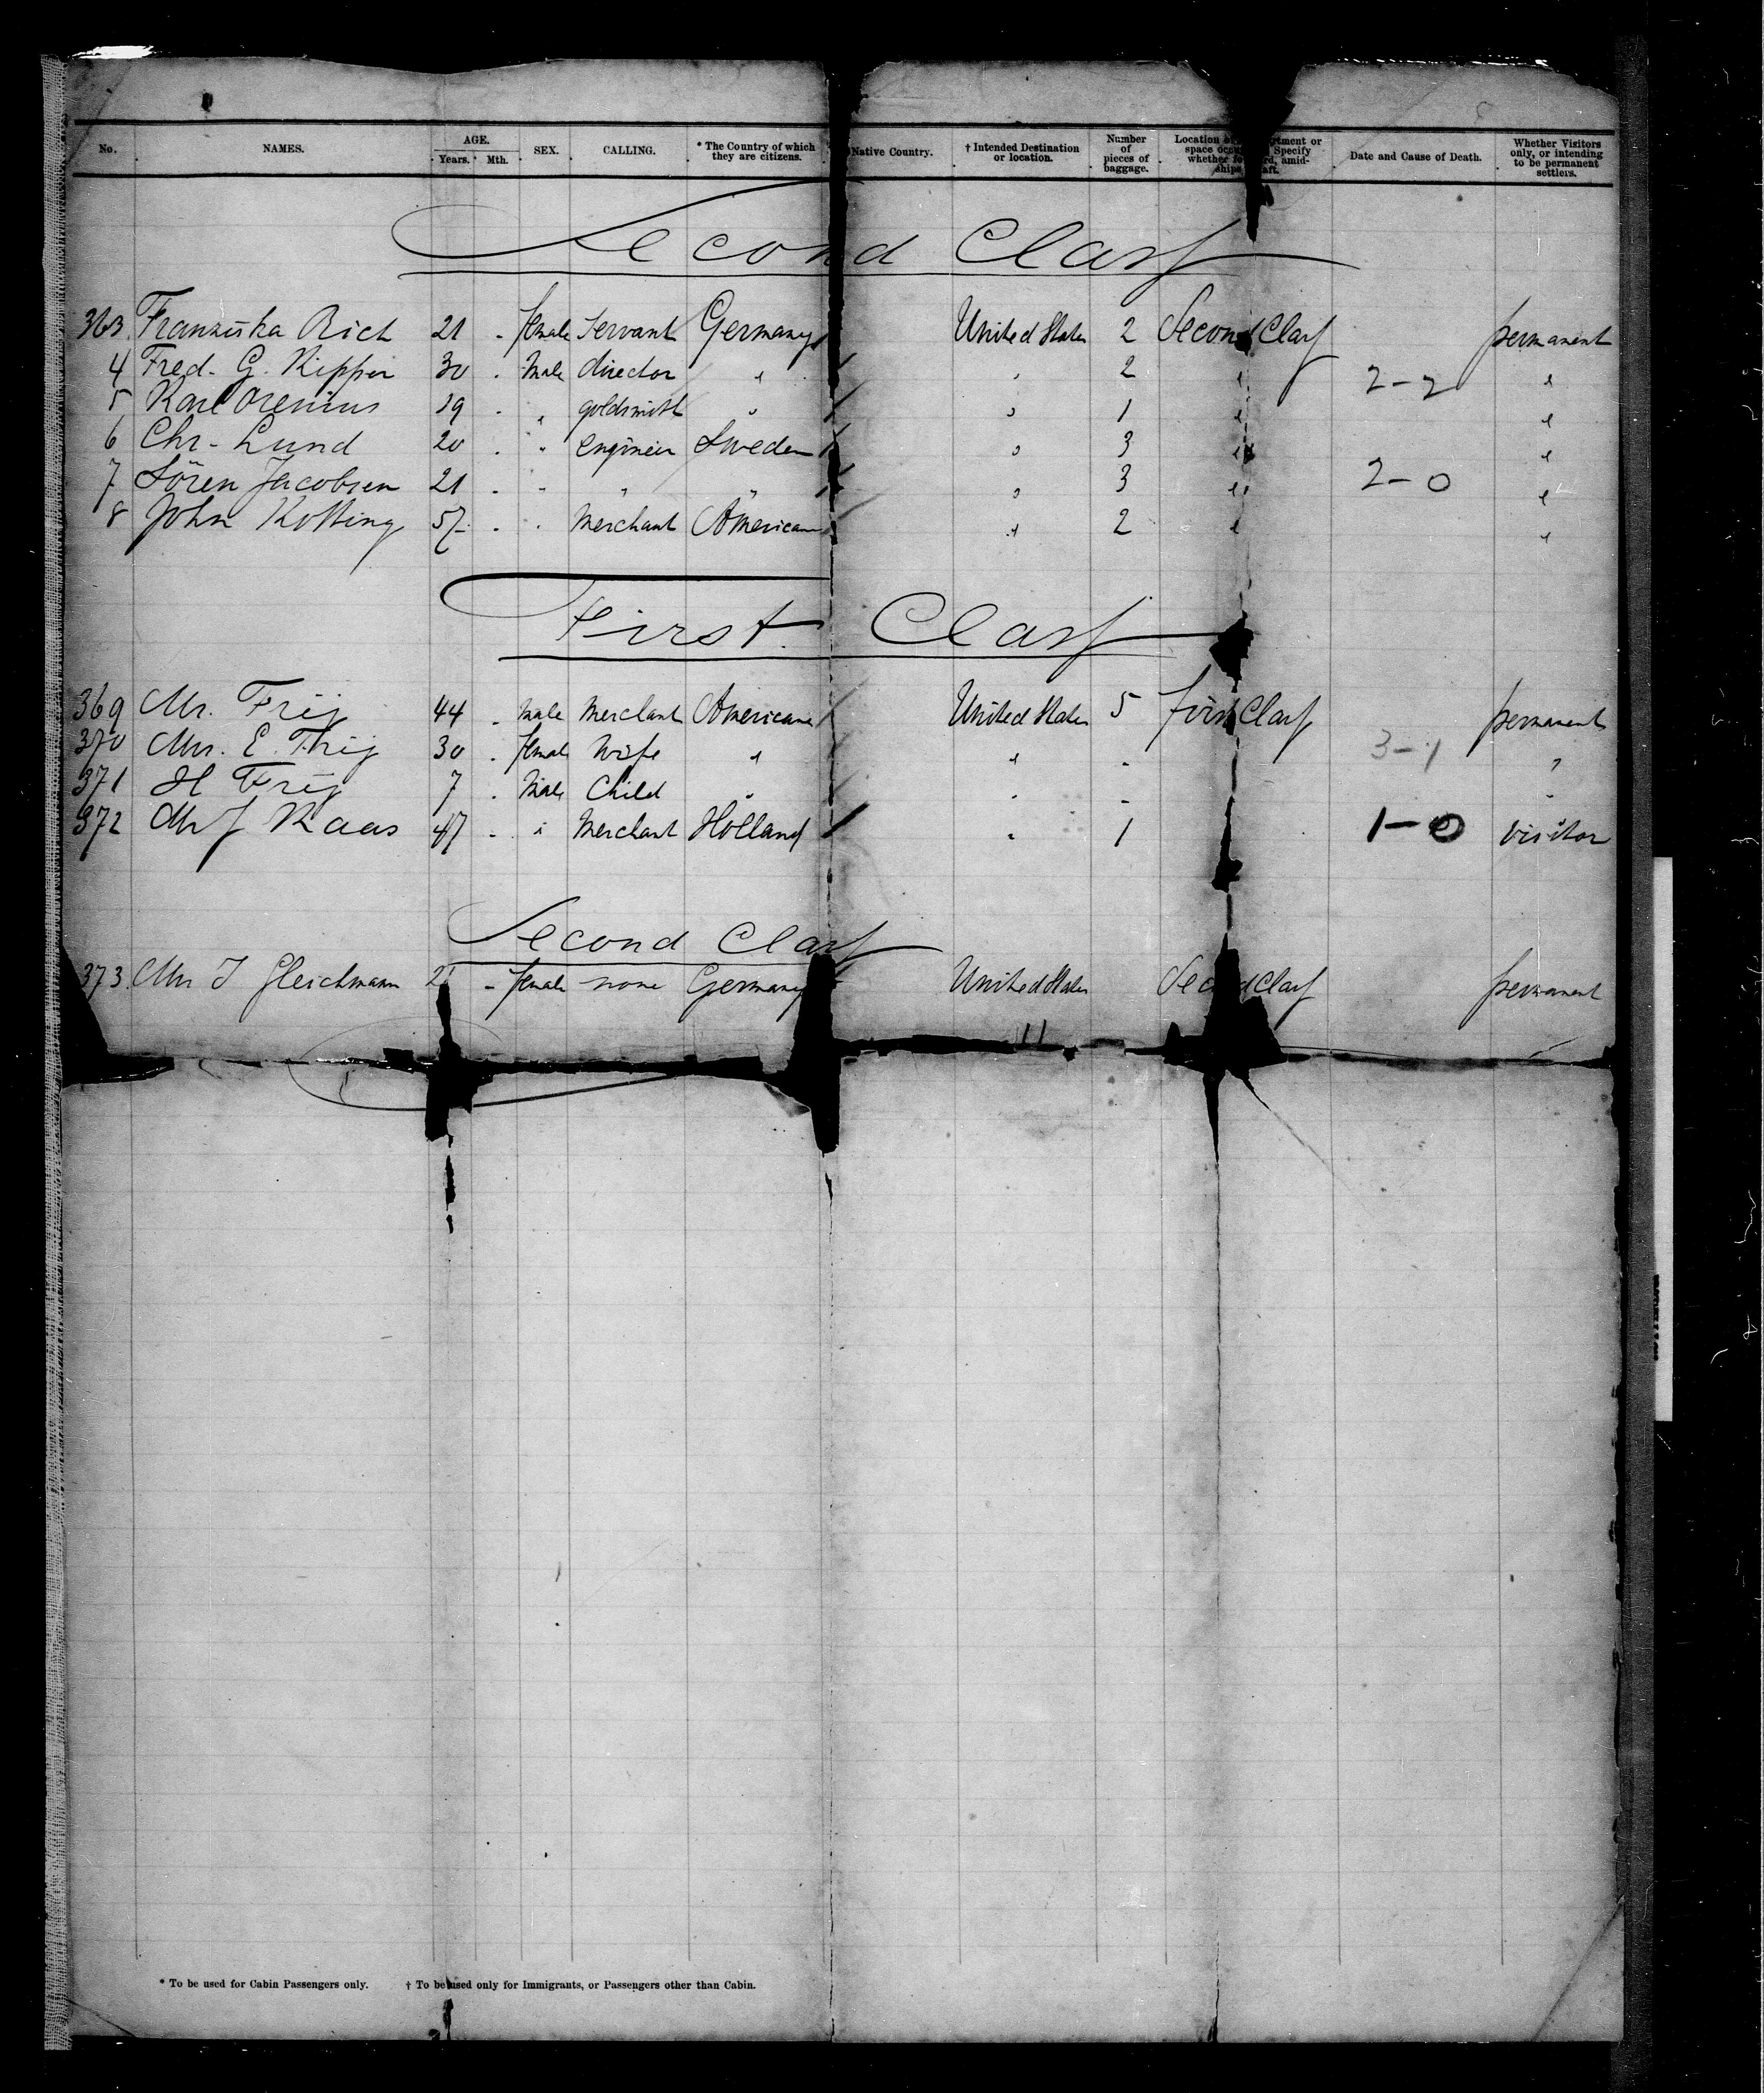 No. NAMES. AGE. Years. Mth. SEX. CALLING. * The Country of which they are citizens. Native Country. † Intended Destination or location. Number of pieces of baggage. Location or space Specify whether amid-ships aft. Date and Cause of Death. Whether Visitors only, or intending to be permanent settlers.
Second Class
363. Franziska Rich 21 - female Servant Germany United States 2 Second Class permanent
4 Fred. G. Kipper 30 . Male director " " 2 " 2-2 "
5 Karl 19 . " goldsmith " " 1 " "
6 Chr. Lund 20 . " Engineer Sweden " 3 " "
7 Sören Jacobsen 21 . " " " " 3 " 2-0 "
8 John Kotting 57 . " Merchant American " 2 " "
First Class
369 Mr. Frij 44 . Male Merchant American United States 5 first Class permanent
370 Mrs. E. Thij 30 . female Wife " " - 3-1 "
371 H Frij 7 . Male Child " " - "
372 Mr J Kaas 47 - " Merchant Holland " 1 1-0 visitor
Second Class
373. Mrs J Gleichmann - female none Germany United States Second Class permanent
11
* To be used for Cabin Passengers only. † To be used only for Immigrants, or Passengers other than Cabin.